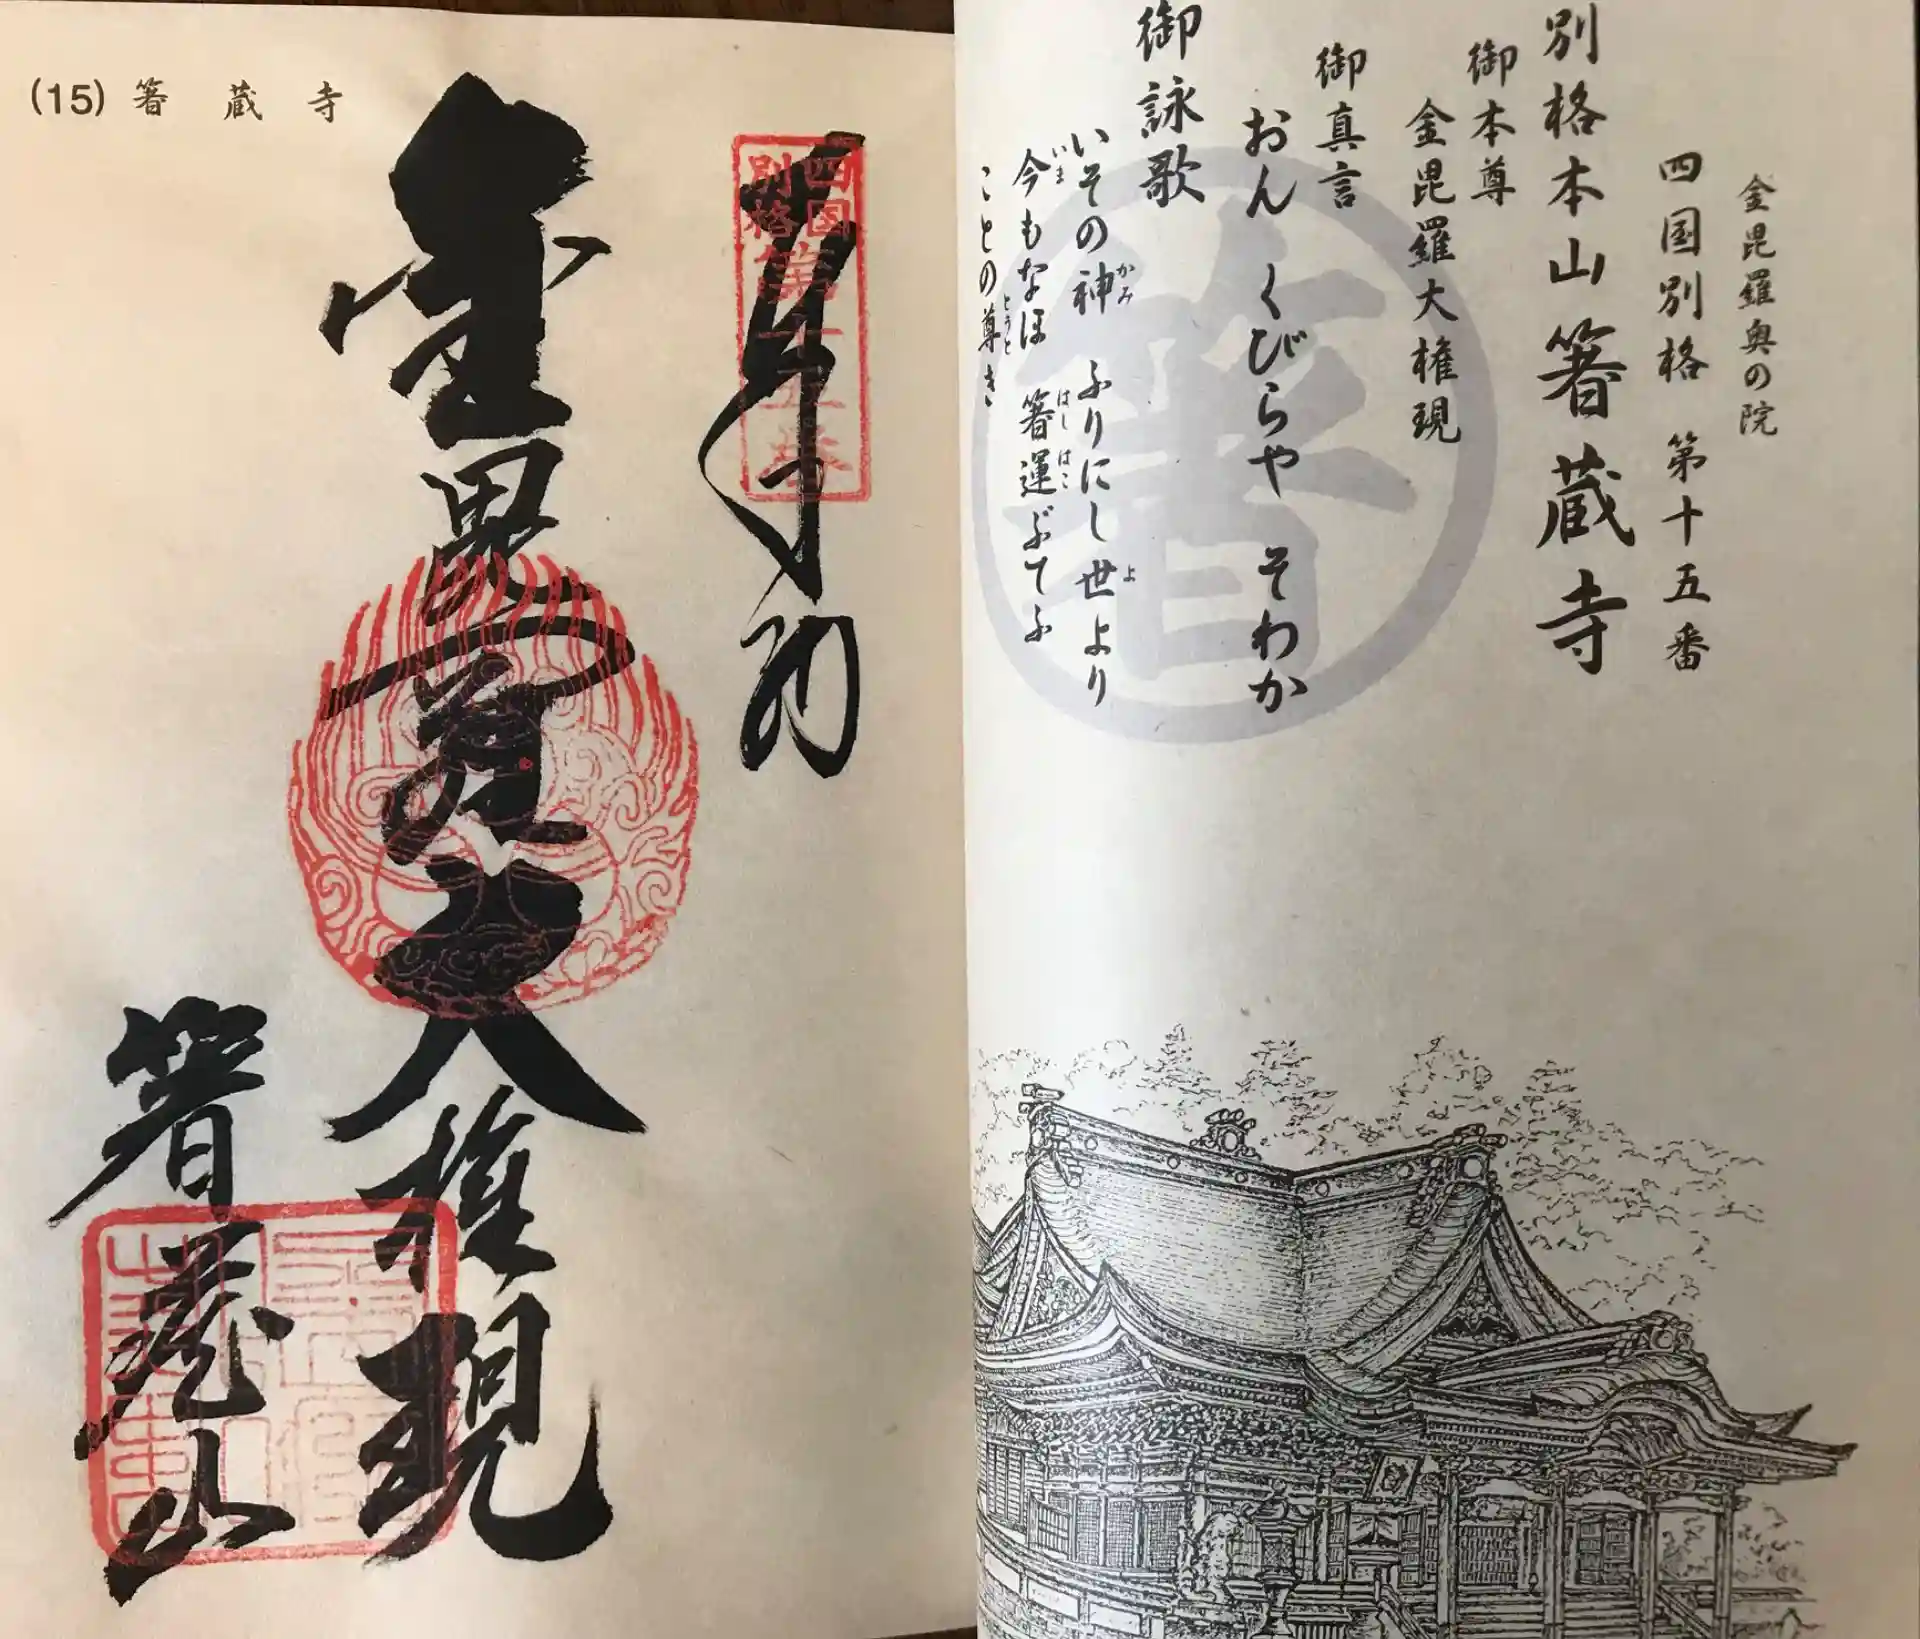 金毘羅奥の院
四国別格 第十五番
別格本山 箸蔵寺
御本尊
金毘羅大権現
御真言
おん くびらや そわか
御詠歌
いその神 ふりにし世より
かみ よ
今もなほ 箸運ぶてふ
いま はし はこ
ことの尊き
とうと
箸
(15) 箸蔵寺
四国
別格
第十五番
奉
金毘羅大権現
箸蔵山